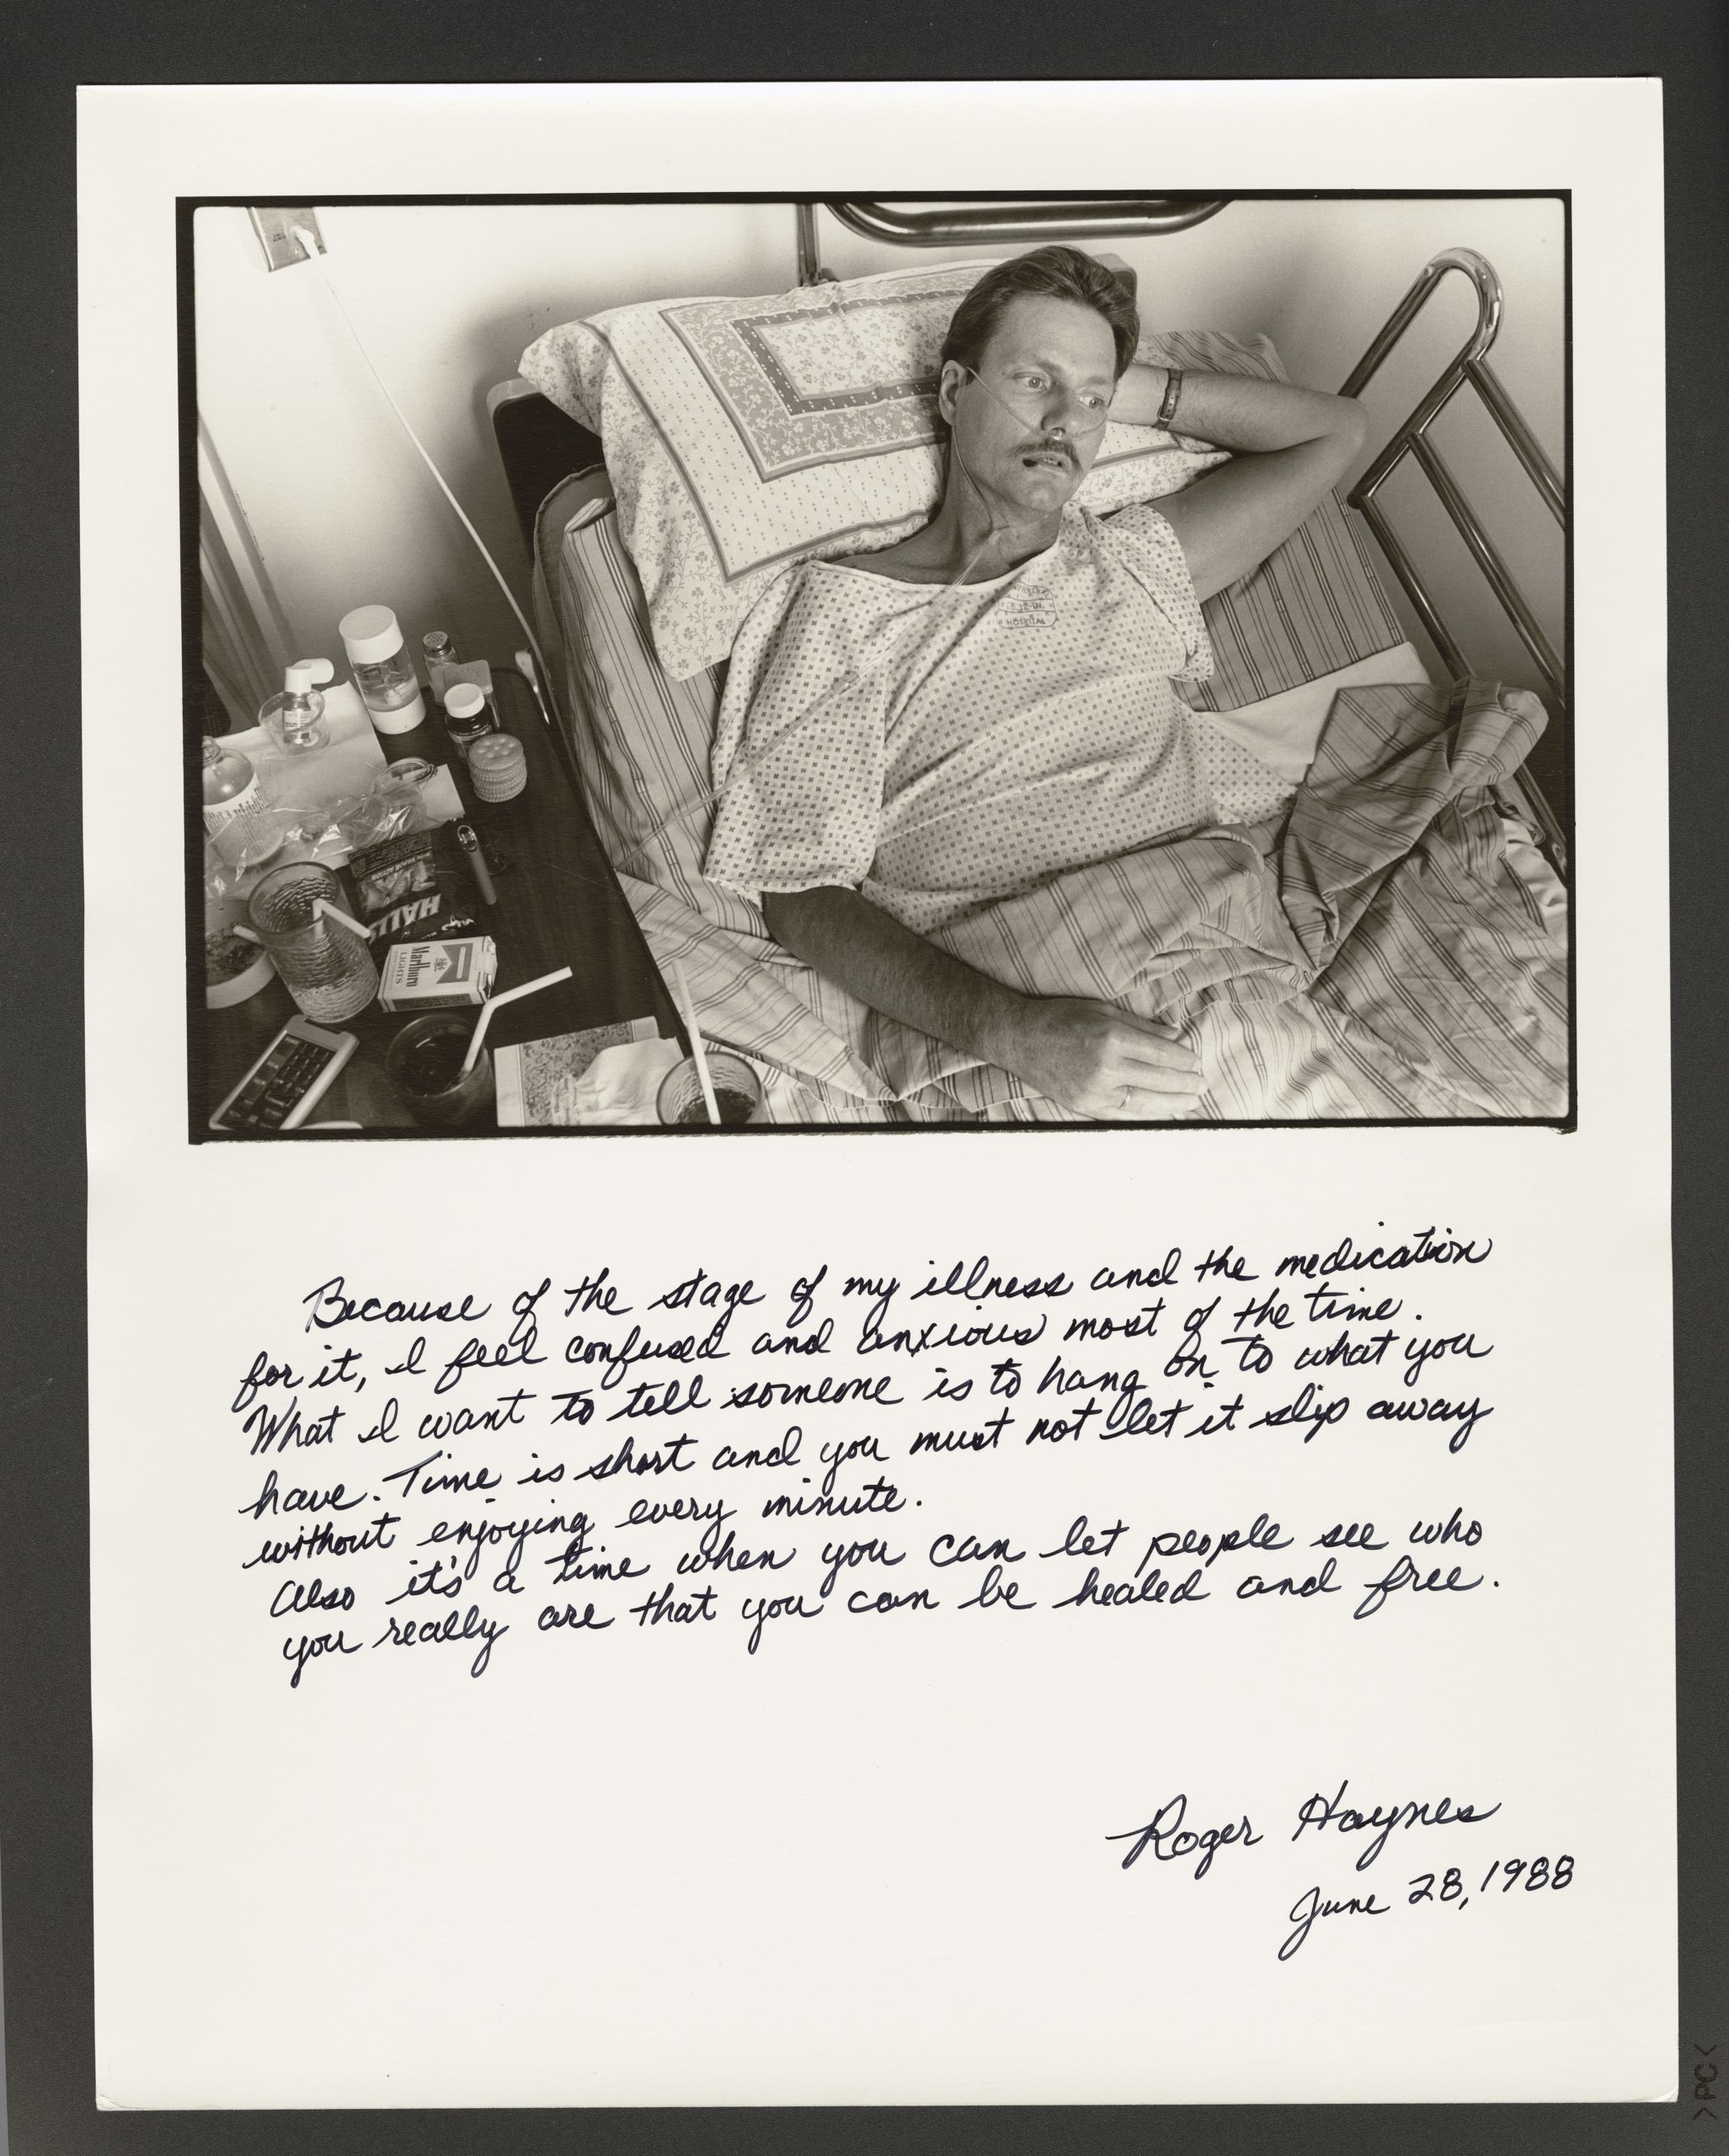 HOSPITAL
HALLS
Marlboro
LIGHTS
Because of the stage of my illness and the medication
for it, I feel confused and anxious most of the time.
What I want to tell someone is to hang on to what you
have. Time is short and you must not let it slip away
without enjoying every minute.
Also it's a time when you can let people see who
you really are that you can be healed and free.
Roger Haynes
June 28, 1988
>PC<